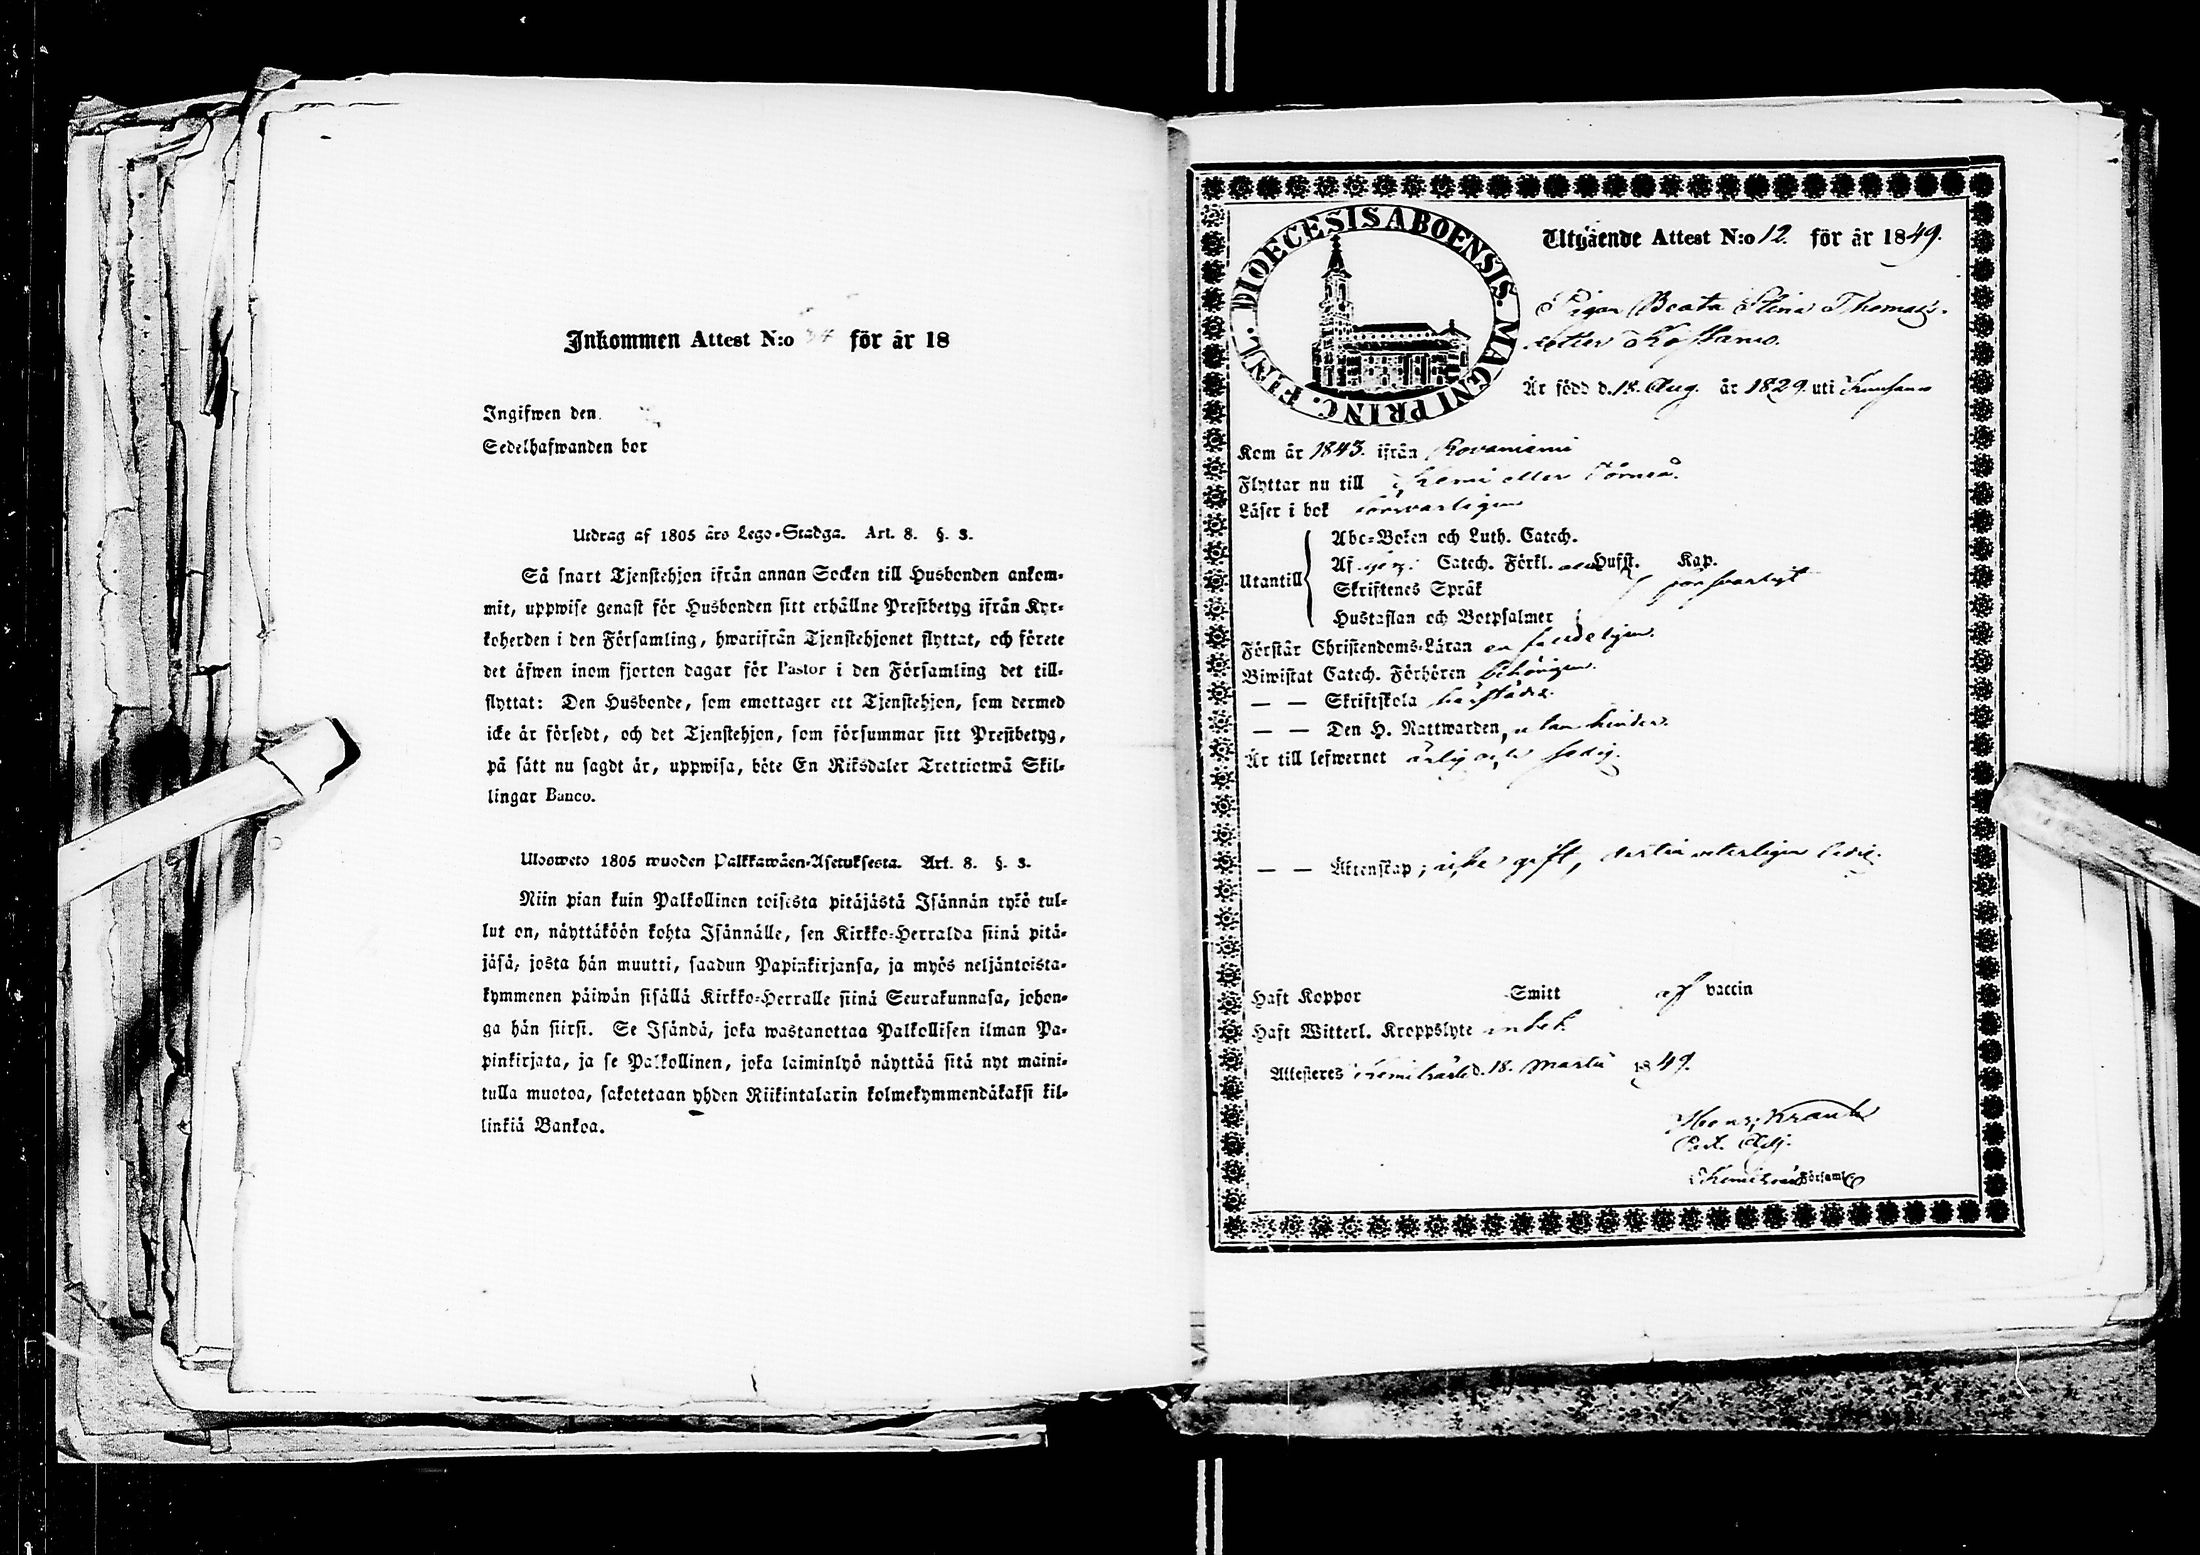 Inkommen Attest N:o för år 18
Ingifwen den
Sedelhafwanden bor
Utdrag af 1805 års Lego-Stadga. Art. 8. §. 3.
Så snart Tjenstehjon ifrån annan Socken till Husbonden ankom-
mit, uppwise genast för Husbonden sitt erhållne Prestbetyg ifrån Kyr-
koherden i den Församling, hwarifrån Tjenstehjonet flyttat, och förete
det äfwen inom fjorton dagar för Pastor i den Församling det till-
flyttat: Den Husbonde, som emottager ett Tjenstehjon, som dermed
icke är försedt, och det Tjenstehjon, som försummar sitt Prestbetyg,
på sätt nu sagdt är, uppwisa, böte En Riksdaler Trettiotwå Skil-
lingar Banco.
Ulosweto 1805 wuoden Palkkawäen-Asetuksesta. Art. 8. §. 3.
Niin pian kuin Palkollinen toisesta pitäjästä Isännän tykö tul-
lut on, näyttäköön kohta Isännälle, sen Kirkko-Herralda siinä pitä-
jäsä, josta hän muutti, saadun Papinkirjansa, ja myös neljäntoista-
kymmenen päiwän sisällä Kirkko-Herralle siinä Seurakunnasa, johon-
ga hän siirsi. Se Isändä, joka wastanottaa Palkollisen ilman Pa-
pinkirjata, ja se Palkollinen, joka laiminlyö näyttää sitä nyt maini-
tulla muotoa, sakotetaan yhden Riikintalarin kolmekymmendäkaksi kil-
linkiä Bankoa.
DIOECESIS ABOENSIS. MAGNI PRINC. FINL.
Utgående Attest N:o 12. för år 1849.
Pigan Beata Stina Thomas-
dotter
Är född d. 18. Aug. år 1829. uti Kuusamo
Kom år 1843. ifrån Rovaniemi
Flyttar nu till Kemi eller Torneå.
Läser i bok försvarligen
Utantill
Abc-Boken och Luth. Catech.
Af Catech. Förkl. Hufst. Kap.
Skriftenes Språk försvarligt
Hustaflan och Botpsalmer
Förstår Christendoms-Läran
Biwistat Catech. Förhören behörigen.
— — Skriftskola
— — Den H. Nattwarden, utan hinder.
Är till lefwernet ärlig och sedig.
— — Äktenskap; icke gift, ledig.
Haft Koppor Smitt af vaccin
Haft Witterl. Kroppslyte obek.
Attesteres Kemiträsk d. 18. Martii 1849.
Församl.